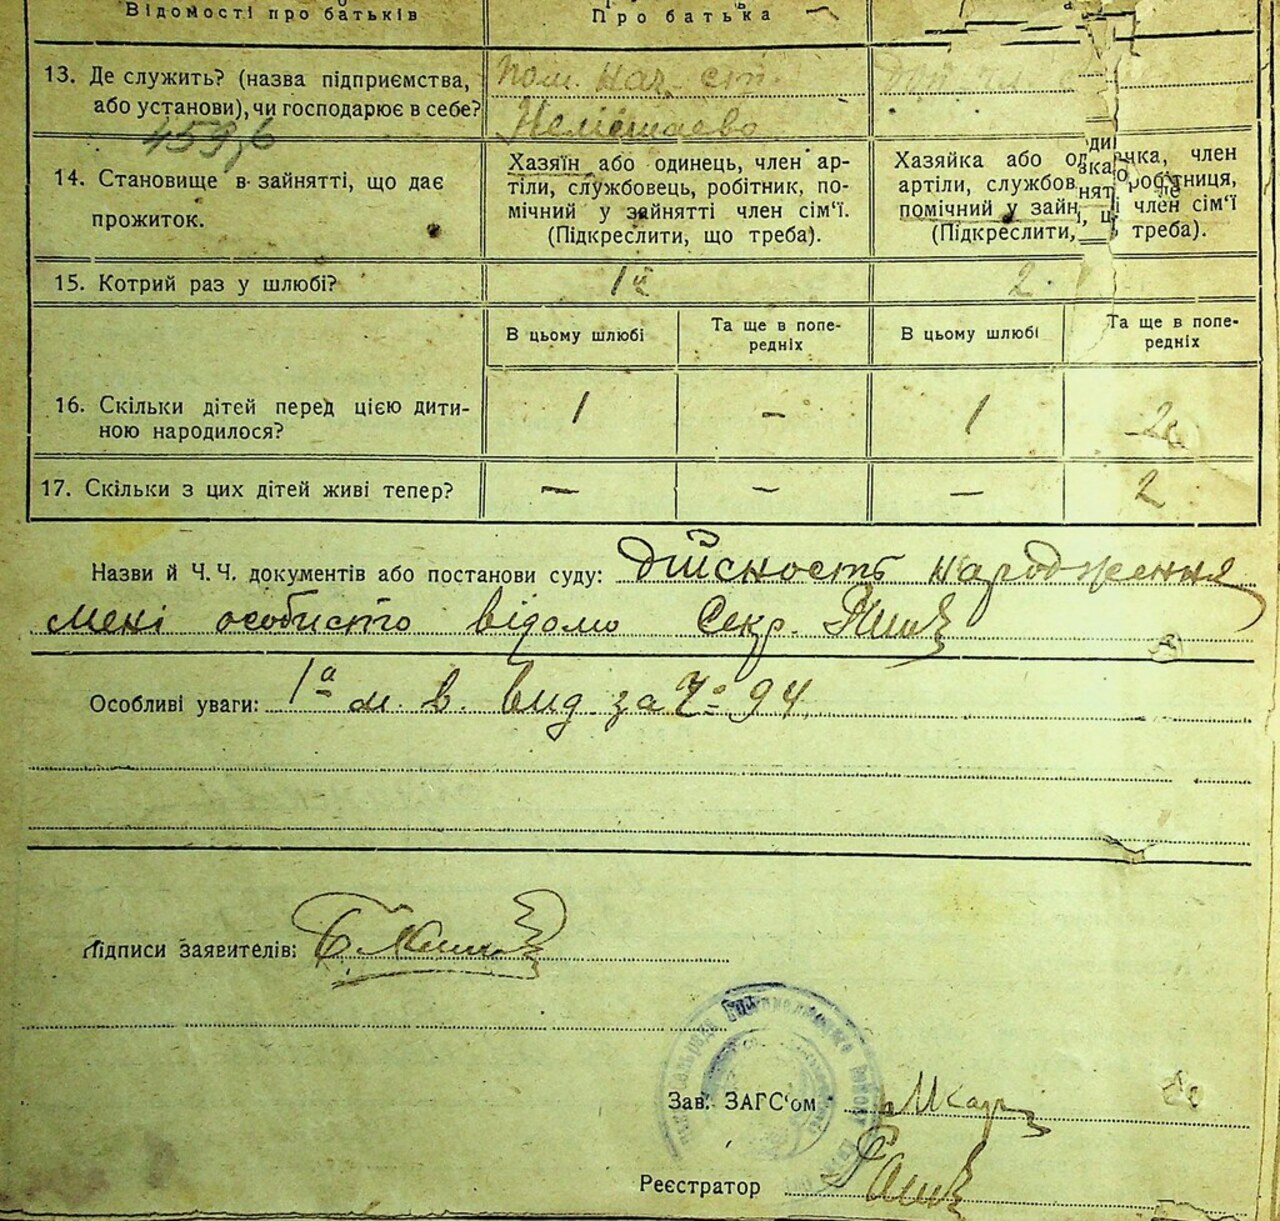 Відомості про батьків
Про батька
13. Де служить? (назва підприємства,
або установи), чи господарює в себе?
Пом. нач. ст.
Немішаево
459,6
14. Становище в зайнятті, що дає
прожиток.
Хазяїн або одинець, член ар-
тіли, службовець, робітник, по-
мічний у зайнятті член сім'ї.
(Підкреслити, що треба).
Хазяйка або член
артіли, службов робітниця,
помічний у зайн член сім'ї
(Підкреслити, треба).
15. Котрий раз у шлюбі?
1й
2.
В цьому шлюбі
Та ще в попе-
редніх
В цьому шлюбі
Та ще в попе-
редніх
16. Скільки дітей перед цією дити-
ною народилося?
1
–
1
2
17. Скільки з цих дітей живі тепер?
–
–
–
2
Назви й Ч. Ч. документів або постанови суду: дійсность народження
мені особисто відомо Секр.
Особливі уваги: 1а м. в. вид. за № 94
Підписи заявителів:
Зав. ЗАГС'ом
Реєстратор